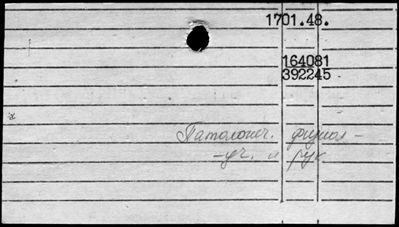 1701.48.
164081
392245
Патологич. физиол-
-уч. и рук